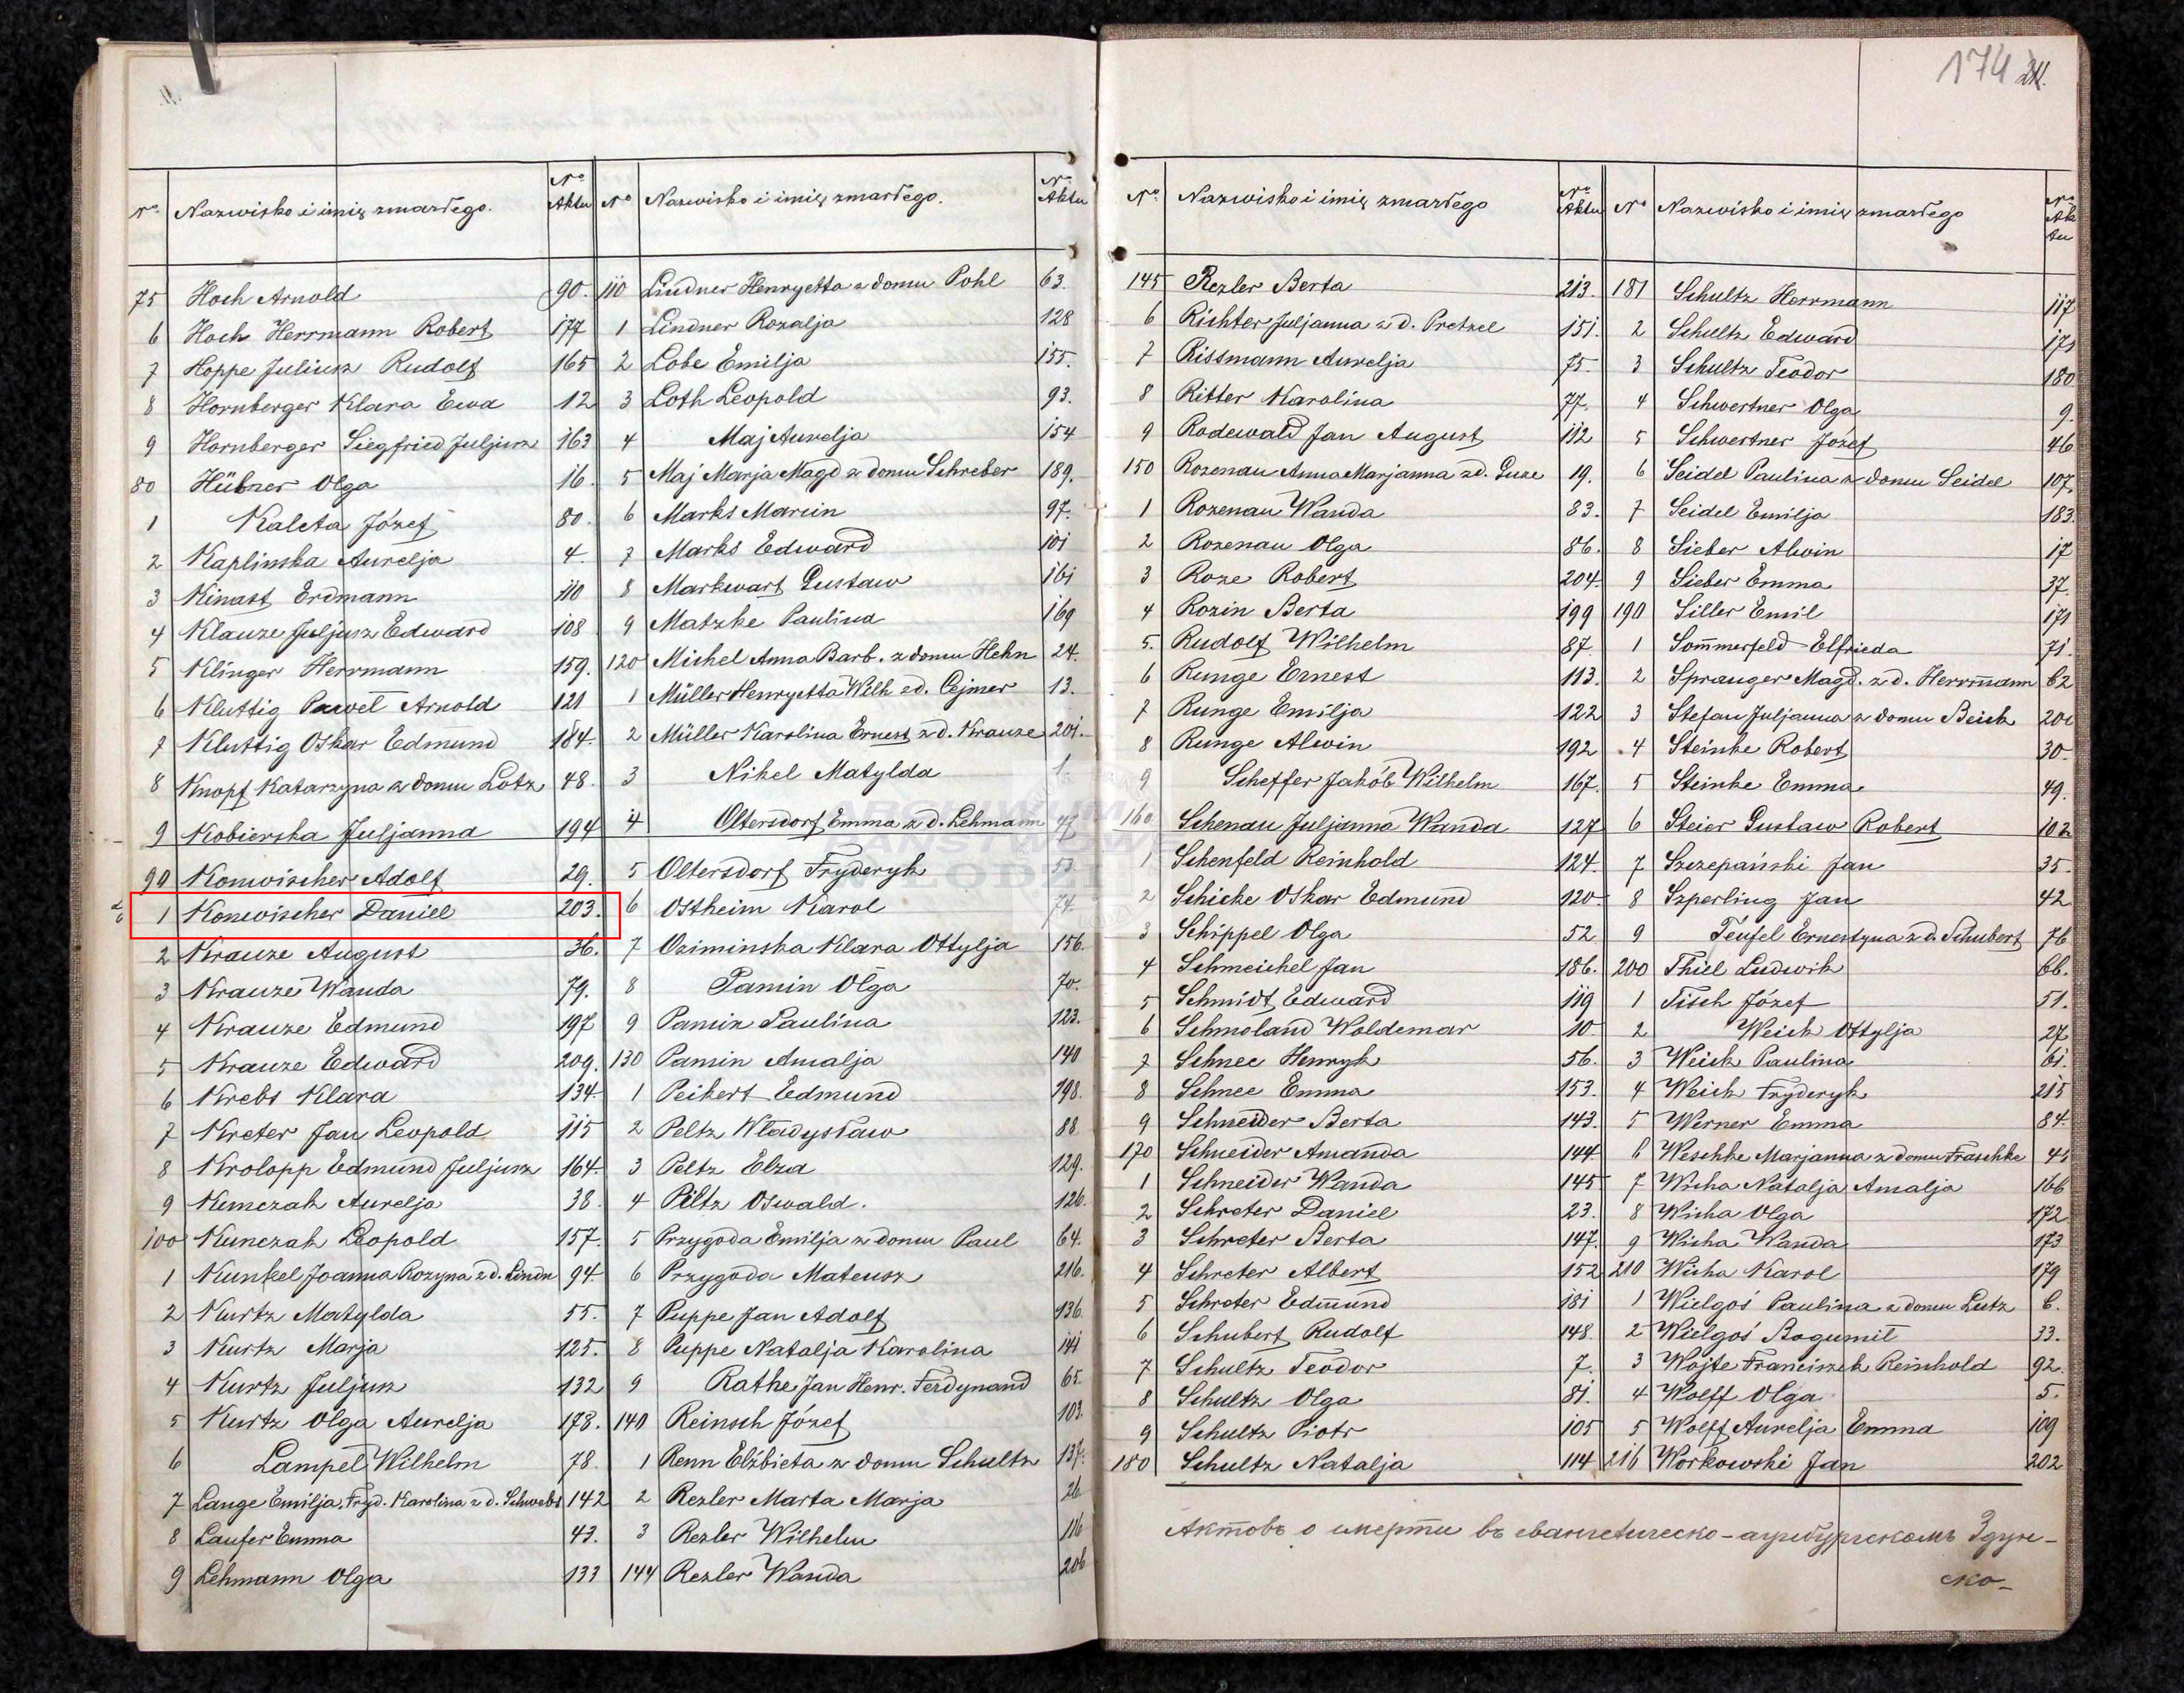 174
No Nazwisko i imię zmarłego. No Aktu
75 Hoch Arnold 90.
6 Hoch Herrmann Robert 177
7 Hoppe Juliusz Rudolf 165
8 Hornberger Klara Ewa 12
9 Hornberger Siegfried Juljusz 163
80 Hübner Olga 16.
1 Kaleta Józef 80.
2 Kaplinska Aurelja 4.
3 Kinast Erdmann 110
4 Klauze Juljusz Edward 108
5 Klinger Herrmann 159.
6 Kluttig Paweł Arnold 121
7 Kluttig Oskar Edmund 184.
8 Knopf Katarzyna z domu Lotz 48.
9 Kobierska Juljanna 194
90 Konwischer Adolf 29.
1 Konwischer Daniel 203.
2 Krauze August 36.
3 Krauze Wanda 79.
4 Krauze Edmund 197
5 Krauze Edward 209.
6 Krebs Klara 134
7 Kreter Jan Leopold 115
8 Krolopp Edmund Juljusz 164
9 Kunczak Aurelja 38.
100 Kunczak Leopold 157.
1 Kunkel Joanna Rozyna z d. Lindn 94
2 Kurtz Matylda 55.
3 Kurtz Marja 125.
4 Kurtz Juljusz 132
5 Kurtz Olga Aurelja 178.
6 Lampel Wilhelm 78.
7 Lange Emilja Fryd. Karolina z d. Schwebs 142
8 Laufer Emma 43.
9 Lehmann Olga 133
No Nazwisko i imię zmarłego. No Aktu
110 Lindner Henryetta z domu Pohl 63.
1 Lindner Rozalja 128
2 Lobe Emilja 155.
3 Loth Leopold 93.
4 Maj Aurelja 154
5 Maj Marja Magd z domu Schreber 189.
6 Marks Marcin 97.
7 Marks Edward 101
8 Markwart Gustaw 161
9 Matzke Paulina 169
120 Michel Anna Barb. z domu Hehn 24.
1 Müller Henryetta Wilh z d. Cejmer 13.
2 Müller Karolina Ernest z d. Krauze 201.
3 Nikel Matylda 1.
4 Oltersdorf Emma z d. Lehmann
5 Oltersdorf Fryderyk 53
6 Ostheim Karol 74.
7 Oziminska Klara Ottylja 156.
8 Pamin Olga 70.
9 Pamin Paulina 123.
130 Pamin Amalja 140
1 Peikert Edmund 198.
2 Peltz Władysław 88
3 Peltz Elza 129.
4 Piltz Oswald. 126.
5 Przygoda Emilja z domu Paul 64.
6 Przygoda Mateusz 216.
7 Puppe Jan Adolf 136
8 Puppe Natalja Karolina 141
9 Rathe Jan Henr. Ferdynand 65.
140 Reinsch Józef 103.
1 Renn Elżbieta z domu Schultz 137.
2 Rezler Marta Marja 26
3 Rezler Wilhelm 116
144 Rezler Wanda 206
No Nazwisko i imię zmarłego No Aktu
145 Rezler Berta 213.
6 Richter Juljanna z d. Pretzel 151.
7 Rissmann Aurelja 75.
8 Ritter Karolina 77.
9 Rodewald Jan August 112
150 Rozenau Anna Marjanna z d. Guze 19.
1 Rozenau Wanda 83.
2 Rozenau Olga 86.
3 Roze Robert 204.
4 Rozin Berta 199
5. Rudolf Wilhelm 87.
6 Runge Ernest 113.
7 Runge Emilja 122
8 Runge Alwin 192
9 Scheffer Jakób Wilhelm 167.
160 Schenau Juljanna Wanda 127
1 Schenfeld Reinhold 124.
2 Schicke Oskar Edmund 120
3 Schippel Olga 52
4 Schmeichel Jan 186.
5 Schmidt Edward 119
6 Schmoland Woldemar 10
7 Schnee Henryk 56.
8 Schnee Emma 153.
9 Schneider Berta 143.
170 Schneider Amanda 144
1 Schneider Wanda 145
2 Schreter Daniel 23.
3 Schreter Berta 147.
4 Schreter Albert 152
5 Schreter Edmund 181
6 Schubert Rudolf 148
7 Schultz Teodor 7.
8 Schultz Olga 81.
9 Schultz Piotr 105
180 Schultz Natalja 114
No Nazwisko i imię zmarłego No Aktu
181 Schultz Herrmann 117
2 Schultz Edward
3 Schultz Teodor 180
4 Schwertner Olga 9.
5 Schwertner Józef 46
6 Seidel Paulina z domu Seidel 107.
7 Seidel Emilja 183.
8 Sieber Alwin 17
9 Sieber Emma 37.
190 Siller Emil 171
1 Sommerfeld Elfrieda 71.
2 Spranger Magd. z d. Herrmann 62
3 Stefan Juljanna z domu Beich
4 Steinke Robert 30.
5 Steinke Emma 49.
6 Steier Gustaw Robert 102
7 Szczepański Jan 35.
8 Szperling Jan 42
9 Teufel Ernestyna z d. Schubert 76
200 Thiel Ludwik 66.
1 Tisch Józef 51.
2 Weich Ottylja 27
3 Weich Paulina 61.
4 Weich Fryderyk 215
5 Werner Emma 84.
6 Weschke Marjanna z domu Fraschke 41
7 Wicha Natalja Amalja 166
8 Wicha Olga 172
9 Wicha Wanda 173
210 Wicha Karol 179
1 Wielgoś Paulina z domu Lutz 6.
2 Wielgoś Bogumił 33.
3 Wojte Franciszek Reinhold 92
4 Wolff Olga 5.
5 Wolff Aurelja Emma 109
216 Workowski Jan 202
Актовъ о смерти въ евангелическо-аугсбургскомъ Здун-
ско-
ARCHIWUM
PAŃSTWOWE
ŁODZI